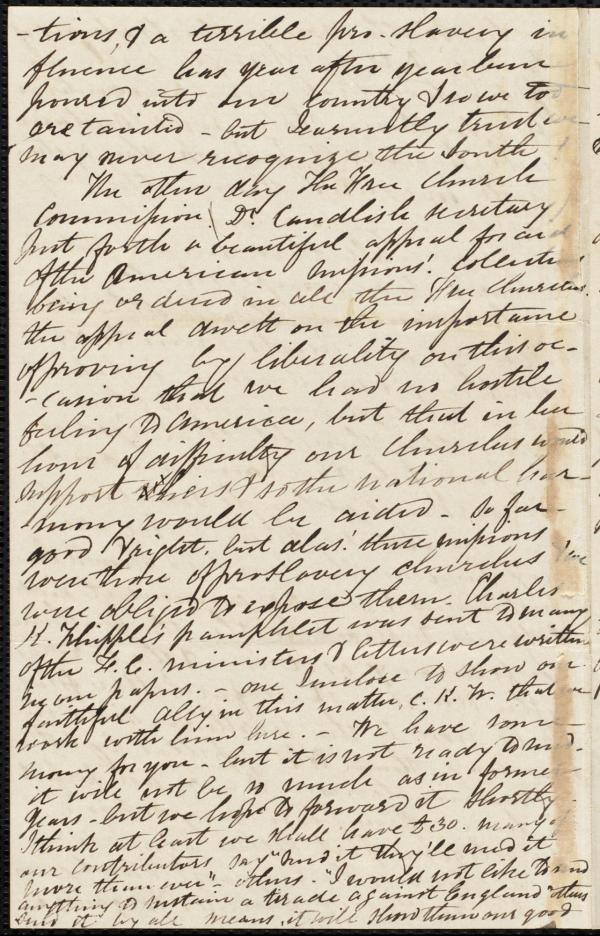 -tions, & a terrible pro-slavery in
fluence has year after year been
poured into our country & now we too
are tainted - but I earnestly trust we
may never recognize the South!
The other day the Free Church
Commission (Dr. Candlish secretary)
put forth a beautiful appeal for aid
of the American missions! Collections
being ordered in all the Free Churches.
the appeal dwelt on the importance
of proving by liberality on this oc-
-casion that we had no hostile
feeling to America, but that in her
hour of difficulty our Churches would
support theirs & so the national har-
-mony would be aided - So far
good & right. but alas! these missions
were those of proslavery churches & we
were obliged to expose them. Charles
K. Whipple's pamphlet was sent to many
of the F. C. ministers & letters were written
in our papers. - one I enclose to show our
faithful ally in this matter, C. K. W. that we
work with him here. - We have some
money for you - but it is not ready to send -
it will not be so much as in former
years - but we hope to forward it shortly -
I think at least we shall have £30. many of
our contributors say "send it they'll need it
more than ever" - others - "I would not like to send
anything to sustain a tirade against England" others
send it by all means, it will show them our good